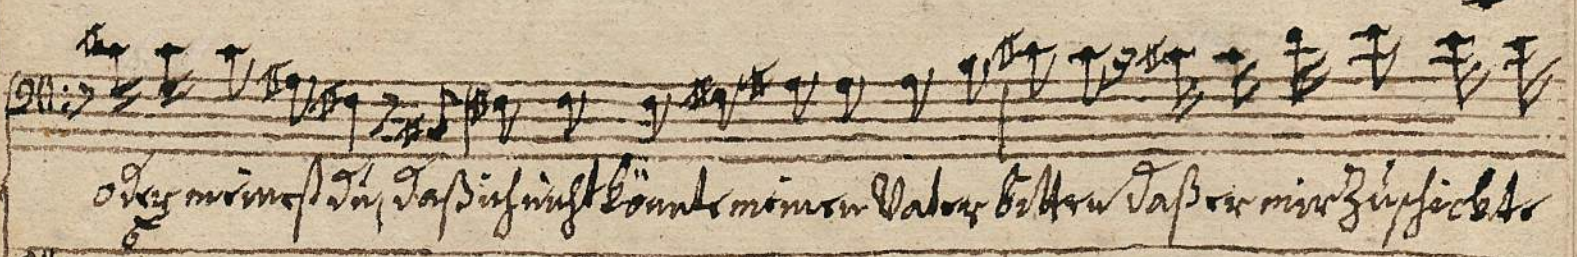 oder meinest du, daß ich nicht könnte meinen Vater bitten daß er mir zuschickte
6